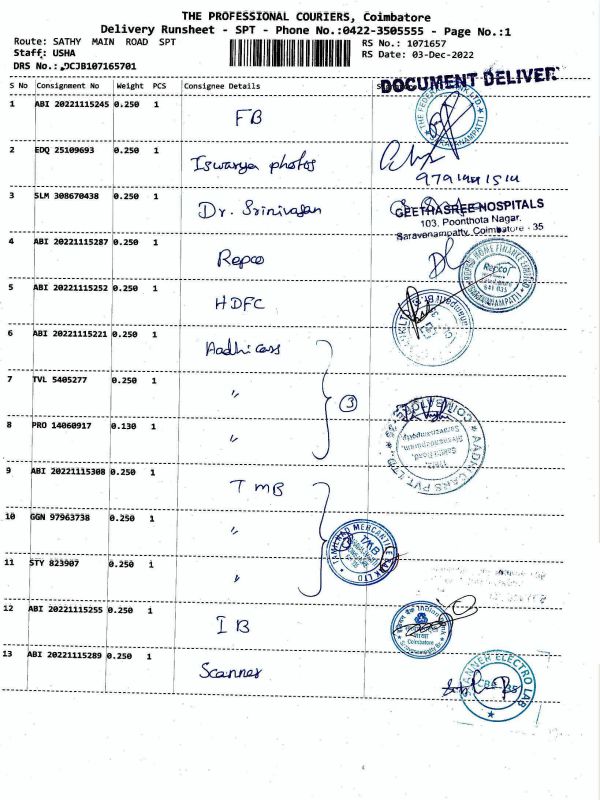 THE PROFESSIONAL COURIERS, Coimbatore
Delivery Runsheet - SPT - Phone No.:0422-3505555 - Page No.:1
Route: SATHY MAIN ROAD SPT
RS No.: 1071657
Staff: USHA
RS Date: 03-Dec-2022
DRS No.: DCJB107165701
DOCUMENT DELIVER
S No Consignment No Weight PCS Consignee Details
1 ABI 20221115245 0.250 1 FB
THE FEDERAL
SARAVANAMPATTI
2 EDQ 25109693 0.250 1 Iswarya photos
3 SLM 308670438 0.250 1 Dr. Srinivasan
GEETHASREE HOSPITALS
103, Poonthota Nagar,
Saravanampatty, Coimbatore - 35
4 ABI 20221115287 0.250 1 Repco
REPCO HOME FINANCE LIMITED
Repco
SARAVANAMPATTI
5 ABI 20221115252 0.250 1 HDFC
6 ABI 20221115221 0.250 1 Aadhi cars
7 TVL 5405277 0.250 1 "
3
8 PRO 14060917 0.130 1 "
AADHI CARS PVT. LTD
COIMBATORE
9 ABI 20221115308 0.250 1 TMB
10 GGN 97963738 0.250 1 "
TAMILNAD MERCANTILE BANK LTD
TMB
11 STY 823907 0.250 1 "
12 ABI 20221115255 0.250 1 IB
Coimbatore
13 ABI 20221115289 0.250 1 Scanner
SCANNER ELECTRO LAB
CBE 35